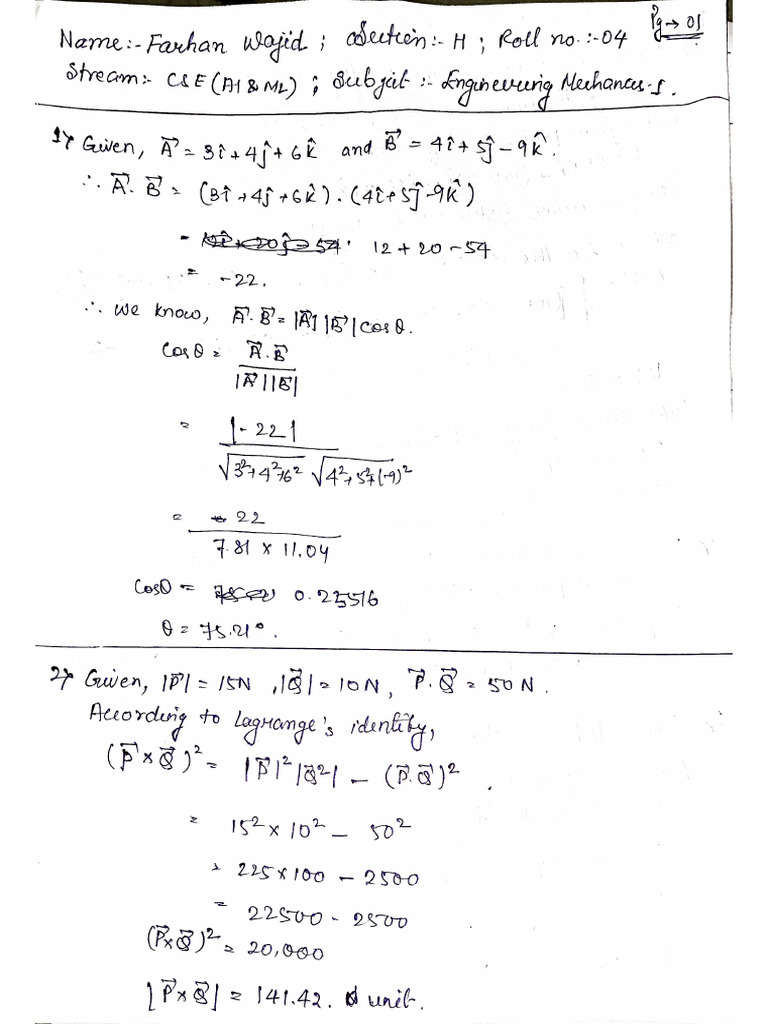 Pg → 01
Name:- Farhan Wajid ; Section:- H ; Roll no.:-04
Stream:- CSE (AI & ML) ; Subject :- Engineering Mechanics-I.
1) Given, A⃗ = 3î + 4ĵ + 6k̂ and B⃗ = 4î + 5ĵ - 9k̂.
∴ A⃗. B⃗ = (3î + 4ĵ + 6k̂) . (4î + 5ĵ - 9k̂)
= 12 + 20 - 54
= -22.
∴ We know, A⃗. B⃗ = |A⃗| |B⃗| cos θ.
Cos θ = A⃗. B⃗ / |A⃗| |B⃗|
= |-22| / √3²+4²+6² √4²+5²+(-9)²
= 22 / 7.81 × 11.04
Cosθ = 0.25516
θ = 75.21°.
2) Given, |P⃗| = 15N , |Q⃗| = 10N, P⃗. Q⃗ = 50N.
According to Lagrange's identity,
(P⃗ × Q⃗)² = |P⃗|² |Q⃗²| - (P⃗. Q⃗)² .
= 15² × 10² - 50²
= 225 × 100 - 2500
= 22500 - 2500
(P⃗ × Q⃗)² = 20,000
|P⃗ × Q⃗| = 141.42. unit.